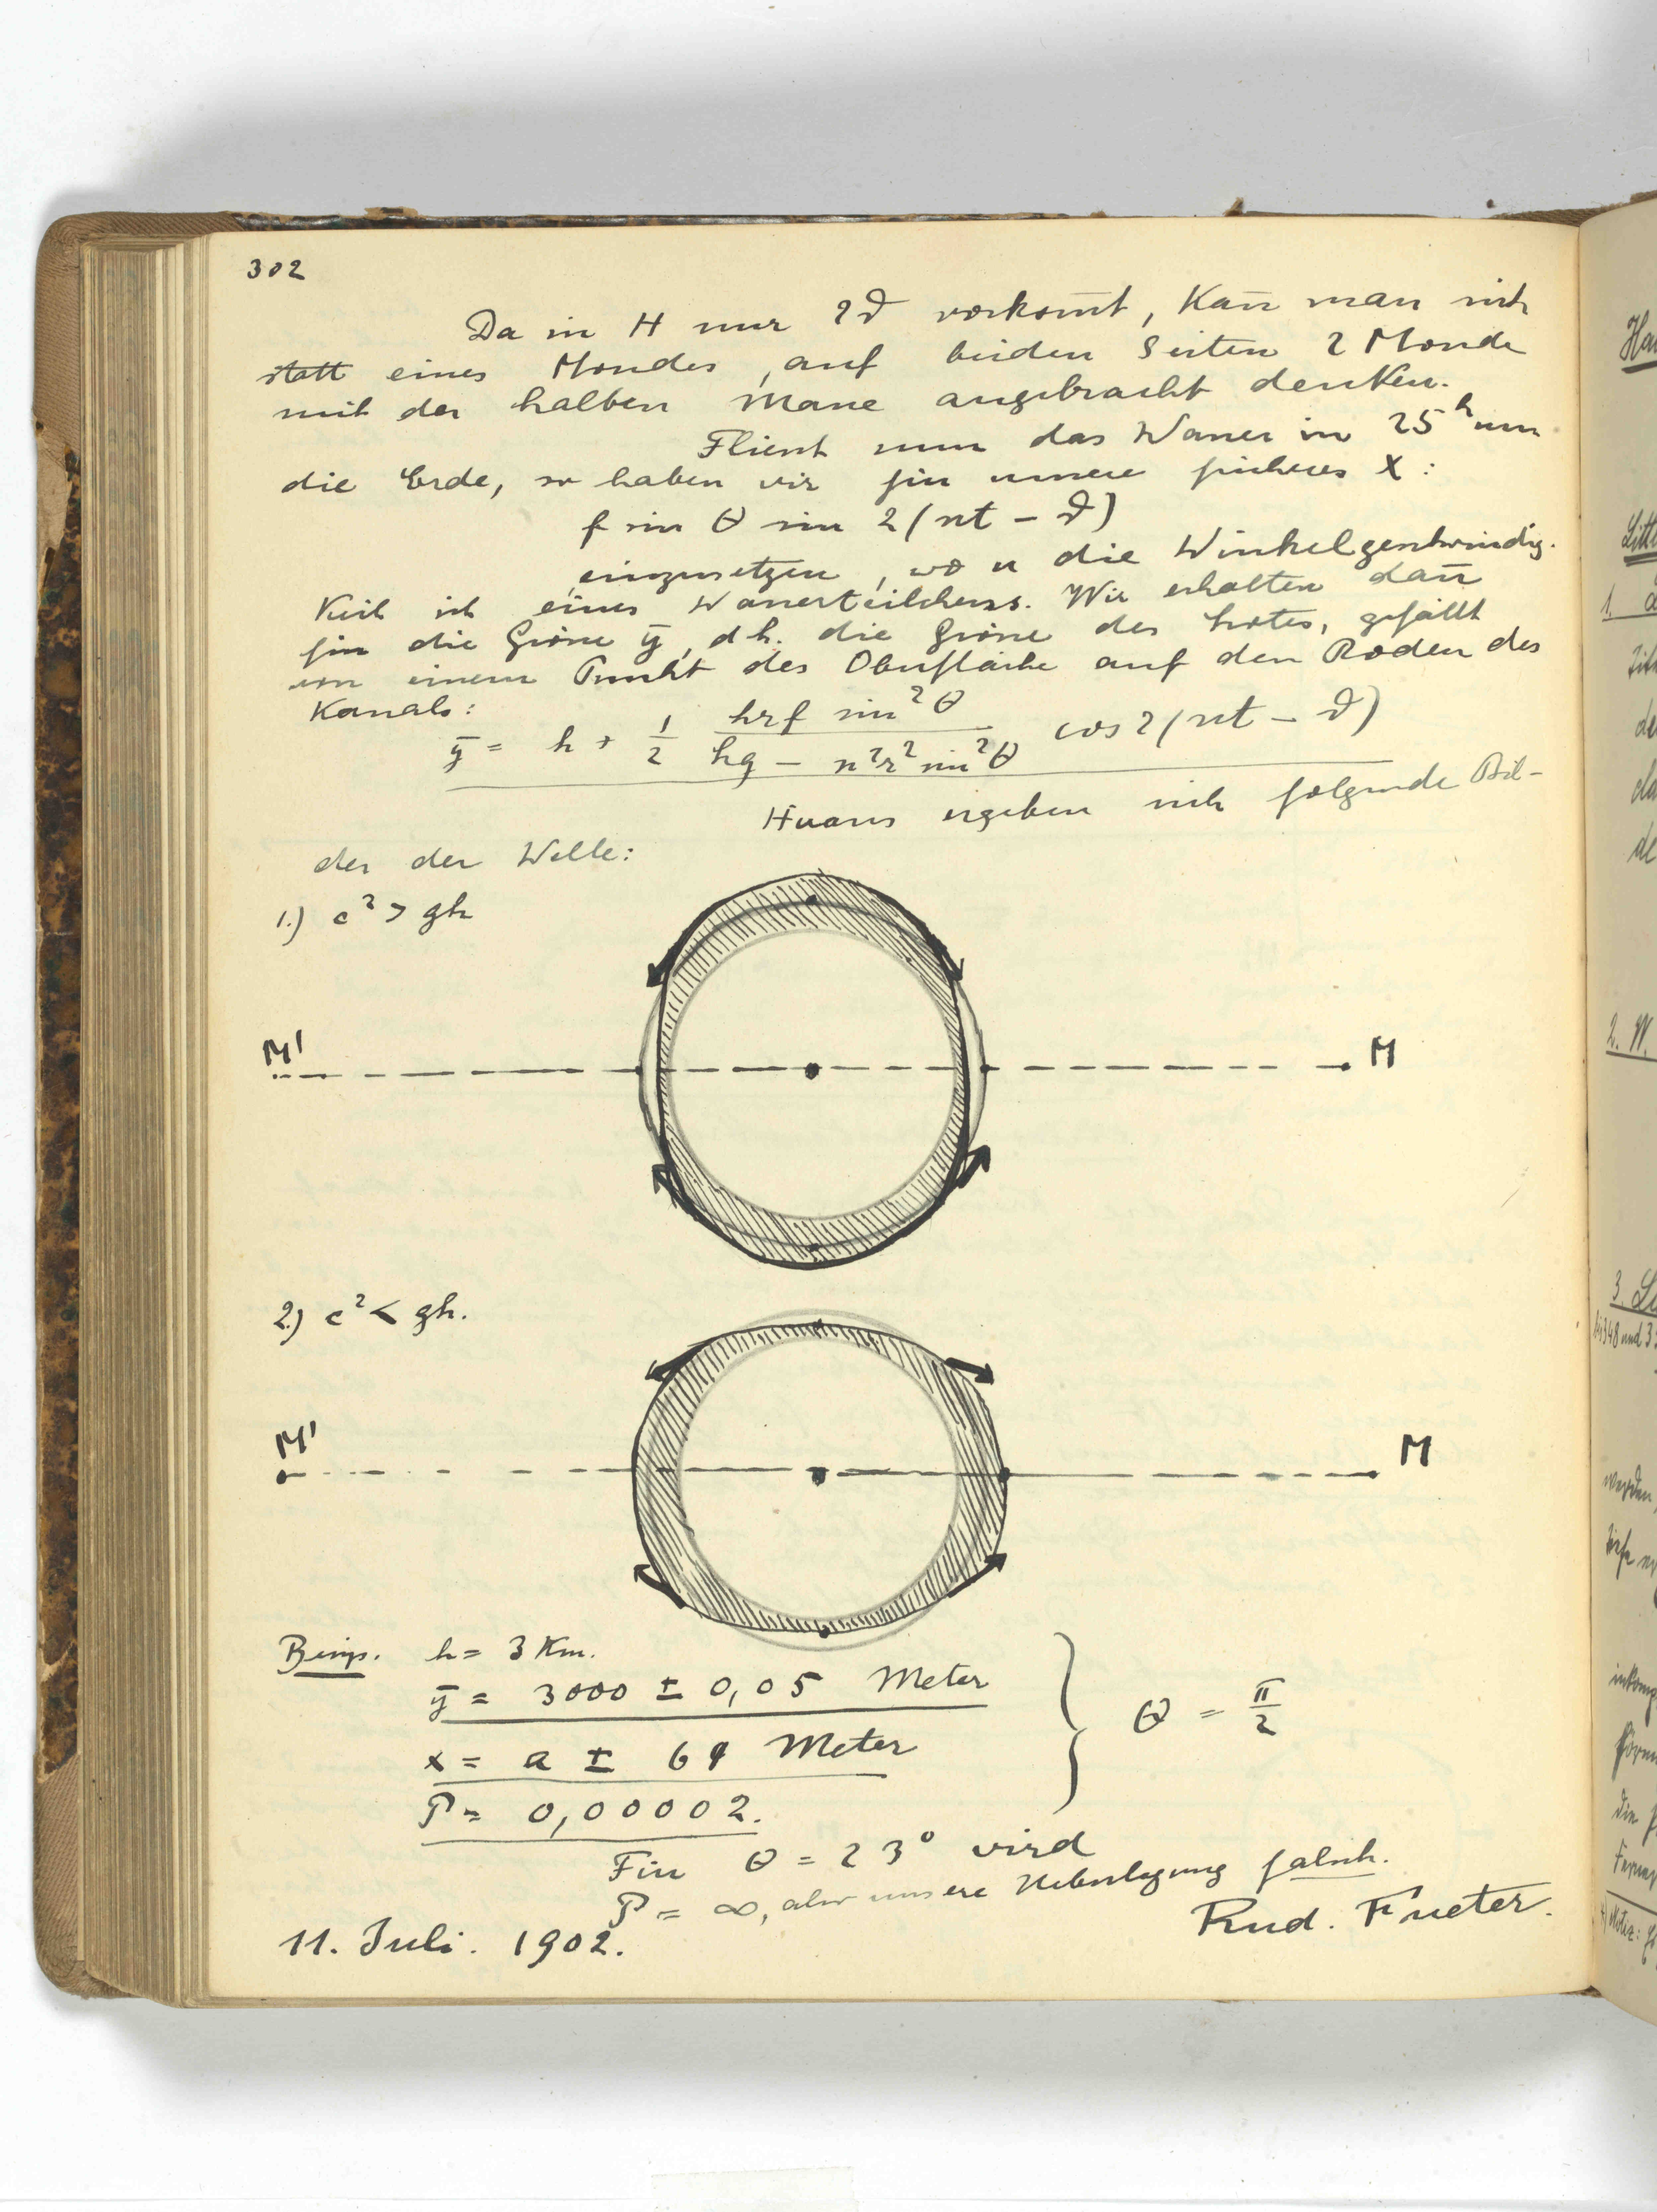 302
Da in H nur 2ϑ vorkom̄t, kan̄ man sich
statt eines Mondes, auf beiden Seiten 2 Monde
mit der halben Masse angebracht denken.
Fliesst nun das Wasser in 25ʰ um
die Erde, so haben wir für unser früheres X:
f sin θ sin 2(nt − ϑ)
einzusetzen, wo n die Winkelgeschwindig-
keit ist eines Wasserteilchens. Wir erhalten dan̄
für die Grösse ȳ, d.h. die Grösse des Lotes, gefällt
von einem Punkt der Oberfläche auf den Boden des
Kanals:
ȳ = h + 1/2 (hrf sin²θ)/(hg − n²r² sin²θ) cos 2(nt − ϑ)
Hieraus ergeben sich folgende Bil-
der der Welle:
1.) c² > gh
M' M
2.) c² < gh.
M' M
Beisp. h = 3 Km.
ȳ = 3000 ± 0,05 Meter
x = a ± 64 Meter
θ = π/2
P = 0,00002.
Für θ = 23° wird
P = ∞, also unsere Ueberlegung falsch.
Rud. Fueter.
11. Juli. 1902.
1.
2. W.
3.